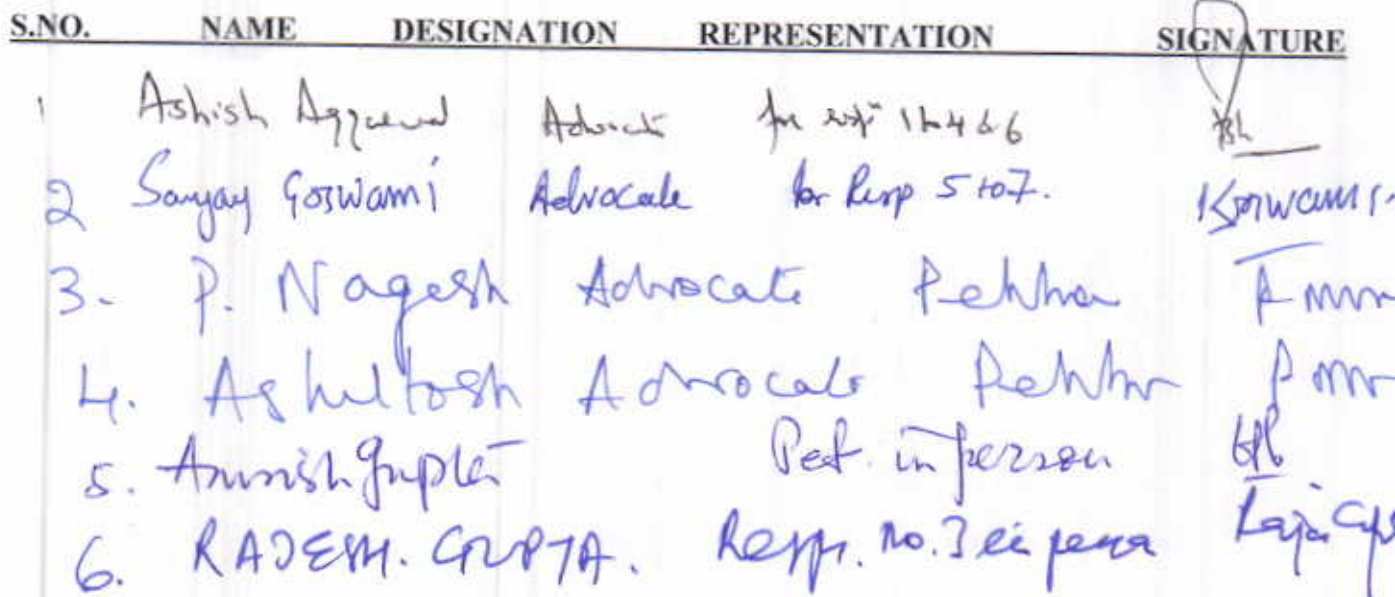 S.NO. NAME DESIGNATION REPRESENTATION SIGNATURE
1 Ashish Aggarwal Advocate for resp 1 to 4 & 6
2 Sanjay Goswami Advocate for Resp 5 to 7. Goswami
3. P. Nagesh Advocate
4. Ashutosh Advocate
5. Gupta Pet. in person
6. RAJESH. GUPTA. Resp. no. 3 in